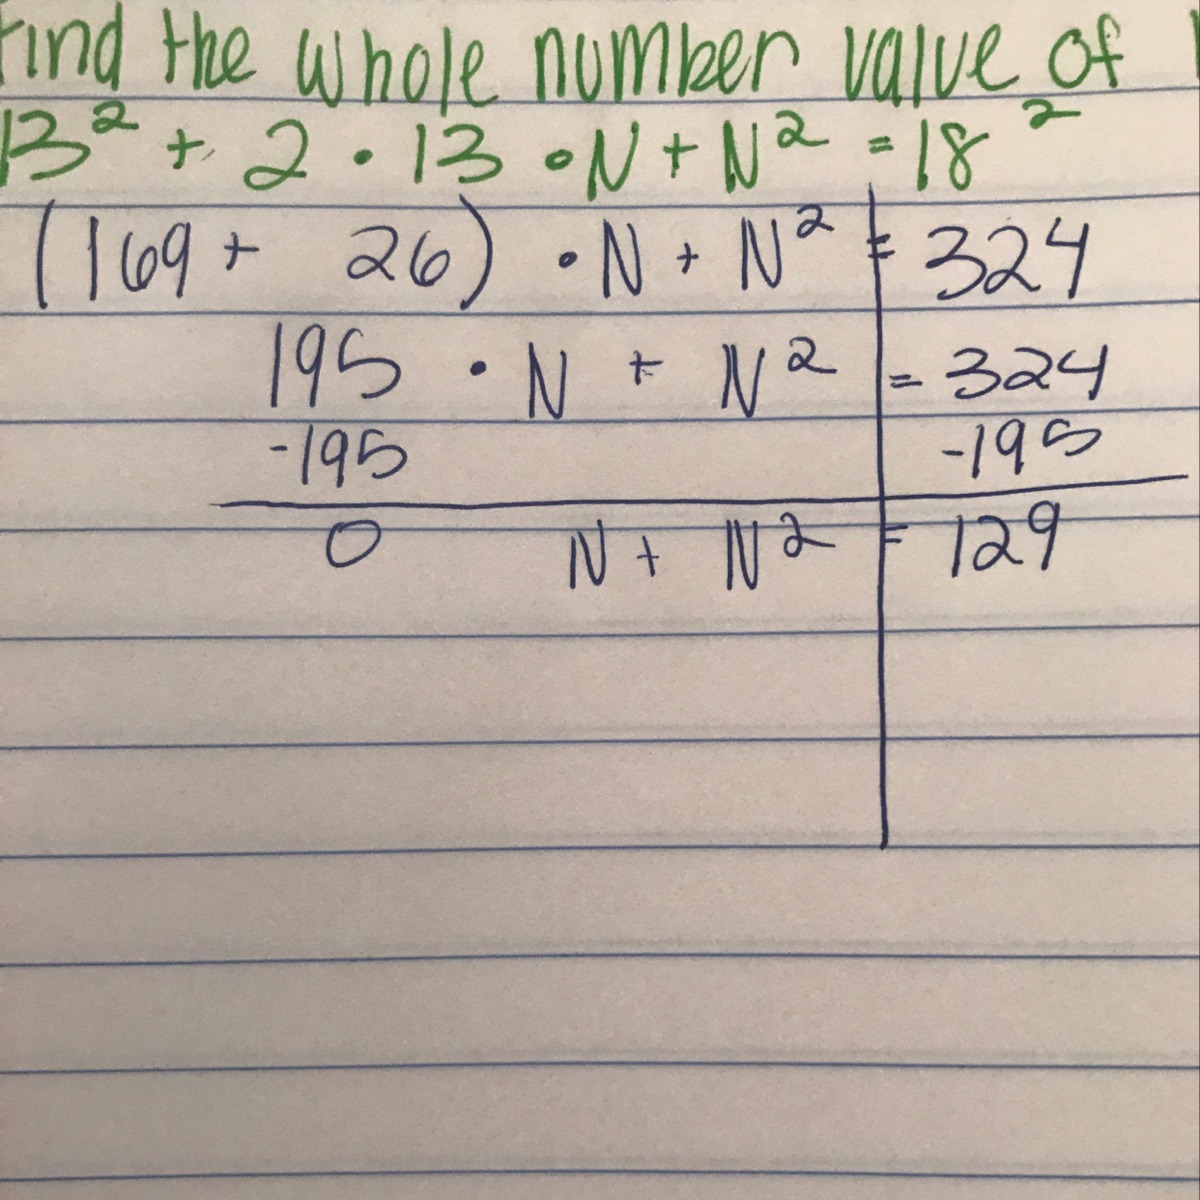 Find the whole number value of
13² + 2 · 13 · N + N² = 18²
(169 + 26) · N + N² = 324
195 · N + N² = 324
-195 -195
0 N + N² = 129